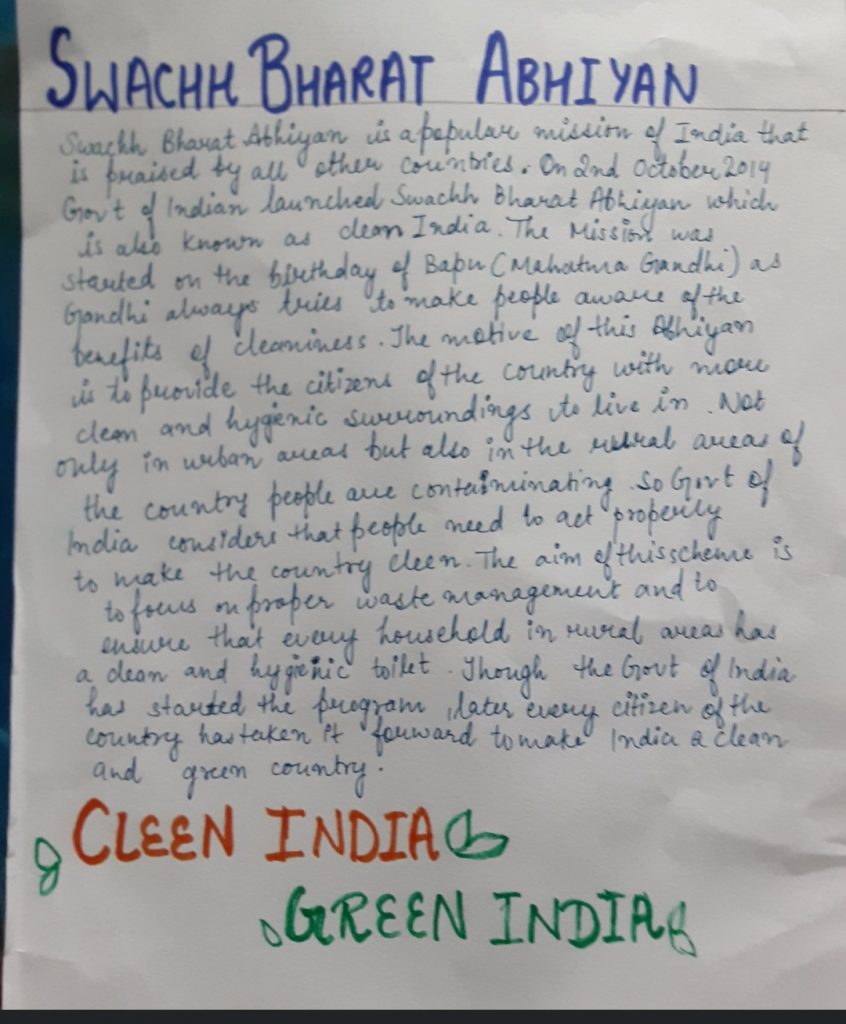 SWACHH BHARAT ABHIYAN
Swachh Bharat Abhiyan is a popular mission of India that
is praised by all other countries. On 2nd October 2014
Gov't of Indian launched Swachh Bharat Abhiyan which
is also known as clean India. The Mission was
started on the birthday of Bapu (Mahatma Gandhi) as
Gandhi always tries to make people aware of the
benefits of cleaniness. The motive of this Abhiyan
is to provide the citizens of the country with more
clean and hygienic surroundings to live in. Not
only in urban areas but also in the rural areas of
the country people are contaminating. So Govt of
India considers that people need to act properly
to make the country cleen. The aim of this scheme is
to focus on proper waste management and to
ensure that every household in rural areas has
a clean and hygienic toilet. Though the Govt of India
has started the program, later every citizen of the
country has taken it forward to make India a clean
and green country.
CLEEN INDIA
GREEN INDIA